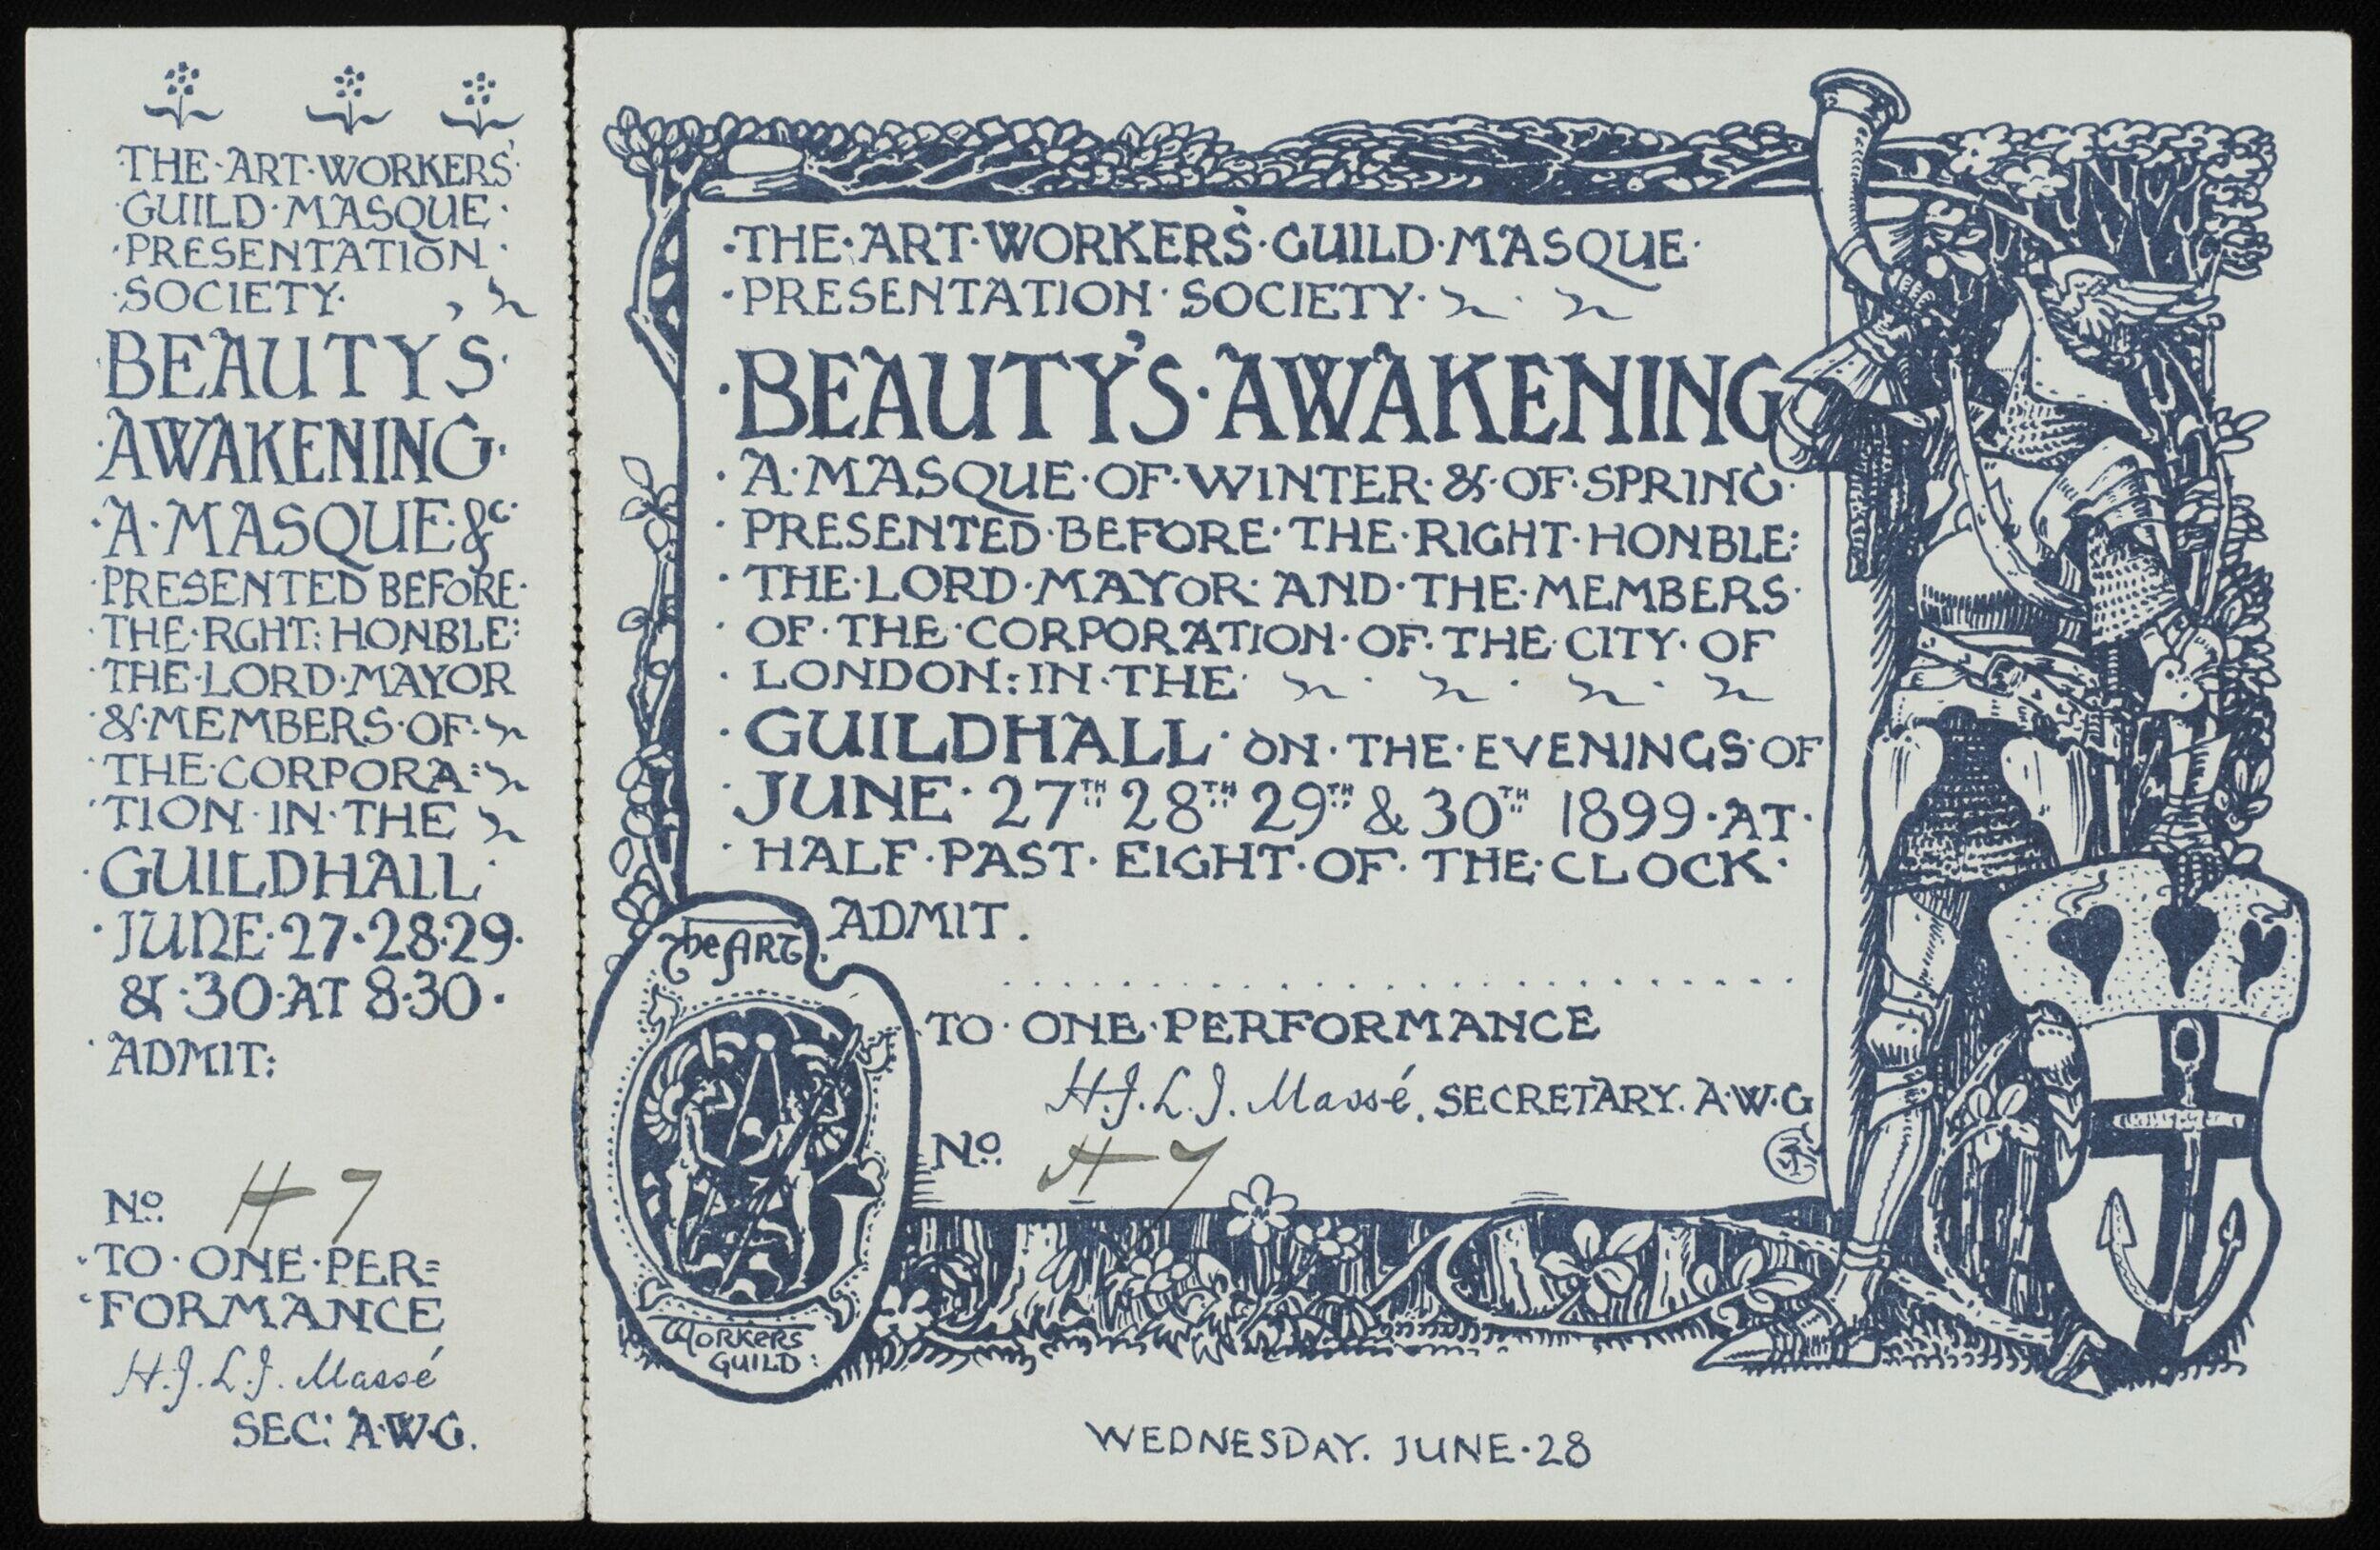 THE·ART·WORKERS'
GUILD·MASQUE·
·PRESENTATION·
·SOCIETY·
BEAUTY'S·
·AWAKENING·
·A·MASQUE·&c·
·PRESENTED BEFORE·
·THE·RGHT: HONBLE:
·THE·LORD·MAYOR
·&·MEMBERS·OF·
·THE·CORPORA:
·TION·IN·THE
·GUILDHALL·
·JUNE·27·28·29·
& ·30·AT 8·30·
·ADMIT:
No. H 7
·TO·ONE·PER=
·FORMANCE
H.J.L.J. Massé
SEC: A·W·G.
·THE·ART·WORKERS'·GUILD·MASQUE·
·PRESENTATION·SOCIETY·
·BEAUTY'S·AWAKENING
·A·MASQUE·OF·WINTER·&·OF·SPRING·
·PRESENTED·BEFORE·THE·RIGHT·HONBLE:
·THE·LORD·MAYOR: AND·THE·MEMBERS·
·OF·THE·CORPORATION·OF·THE·CITY·OF
·LONDON:IN·THE·
·GUILDHALL·ON·THE·EVENINGS·OF
·JUNE·27TH 28TH 29TH & 30TH 1899·AT·
·HALF·PAST·EIGHT·OF·THE·CLOCK·
ADMIT.
TO·ONE·PERFORMANCE
H.J.L.J. Massé. SECRETARY. A·W·G
No. H 7
The ART
WORKERS
GUILD:
WEDNESDAY. JUNE·28